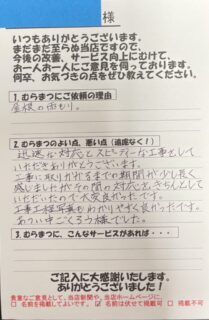 様
いつもありがとうございます。
まだまだ至らぬ当店ですので、
今後の改善、サービス向上にむけて、
お一人お一人にご意見を伺っております。
何卒、お気づきの点をぜひ教えてください。
1. むらまつにご依頼の理由
屋根の雨もり。
2. むらまつのよい点、悪い点（遠慮なく！）
迅速な対応とスピーディーな工事をして
いただきありがとうございます。
工事に取りかかるまでの期間が少し長く
感じましたがその間の対応もきちんとして
いただいたので大変良かったです。
工事工程写真もわかりやすく良かったです。
あつい中ごくろう様でした。
3. むらまつに、こんなサービスがあれば・・・
ご記入に大感謝いたします。
ありがとうございました！
貴重なご意見として、当店新聞や、当店ホームページに、
□ 名前を掲載してよい □ 名前を伏せて掲載可 □ 掲載不可